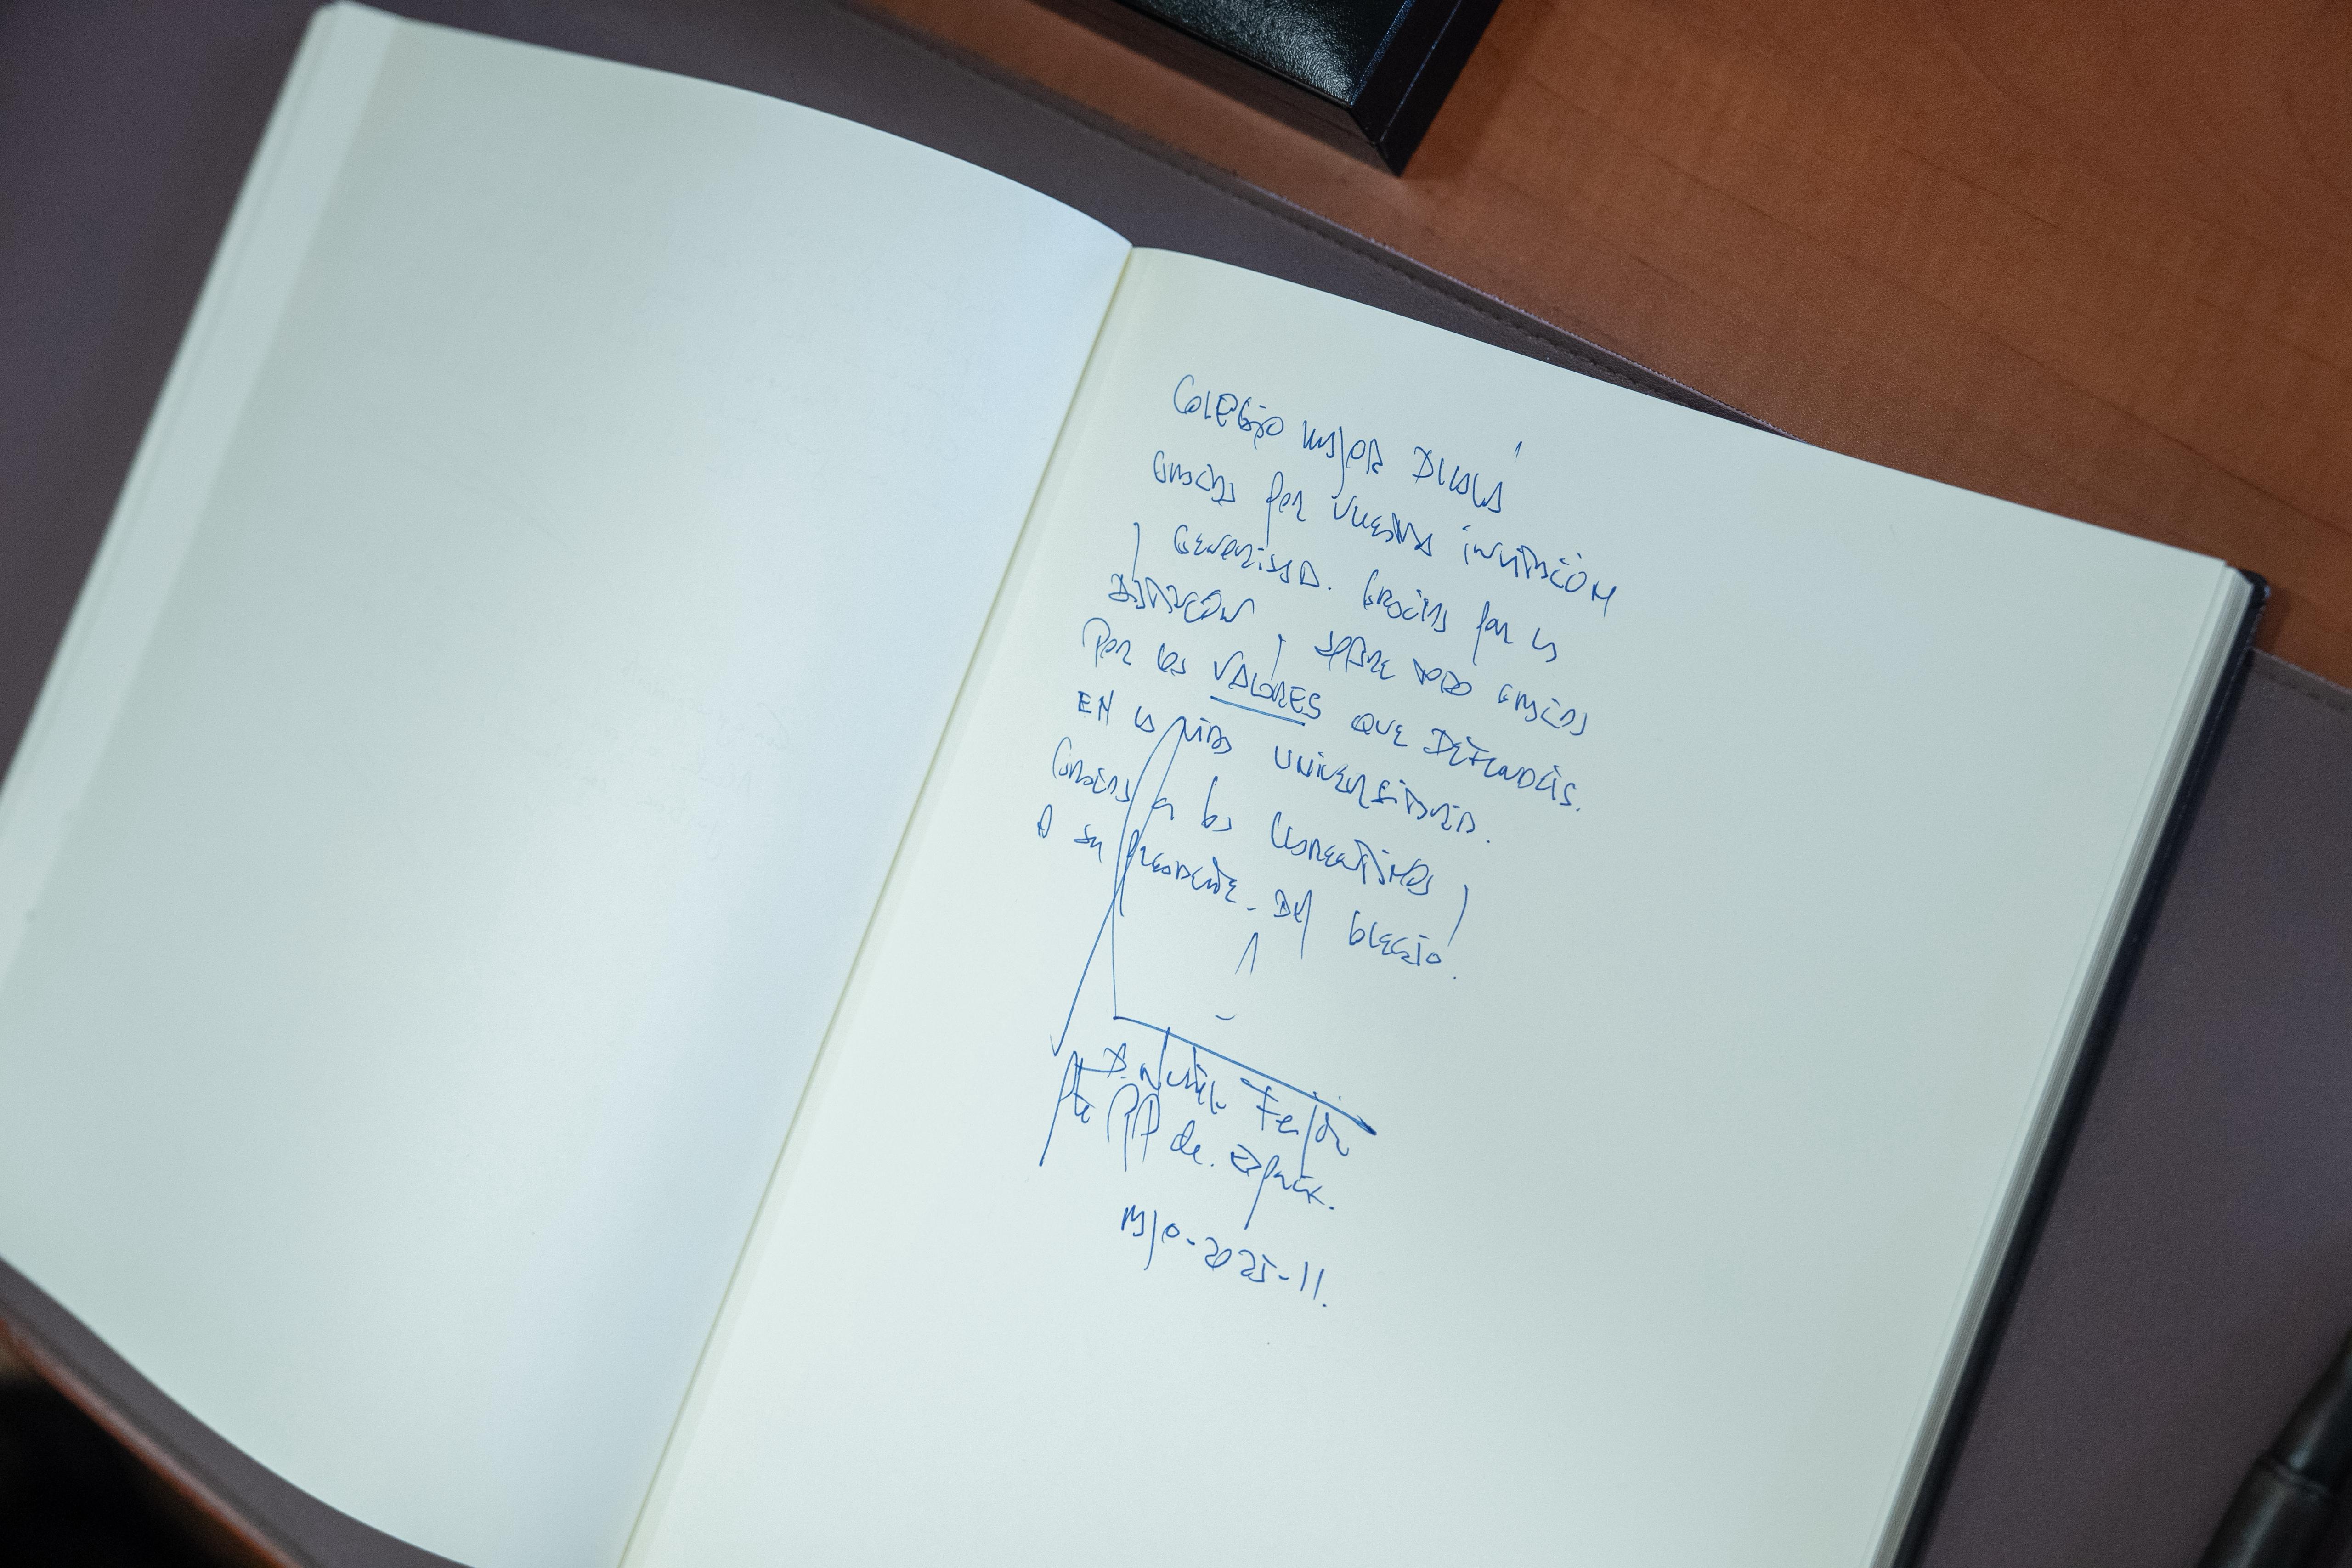 Colegio Mayor Diwala
Gracias por vuestra invitación
y Generosidad. Gracias por la
y sobre todo gracias
Por los VALORES QUE DEFENDÉIS.
EN la vida UNIVERSITARIA.
Gracias a los y
A su presidente. Del Colegio.
A. Núñez Feijóo
Pte PP de España.
Mayo-2025-11.